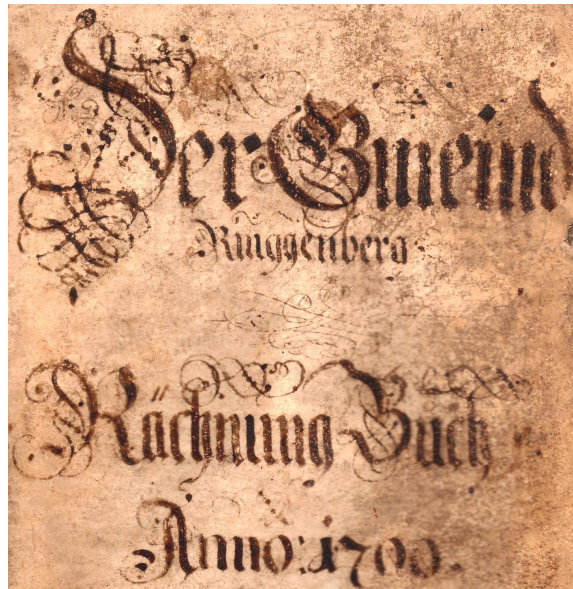 Der Gmeind
Ringgenberg
Rächnung Buch
Anno: 1700.